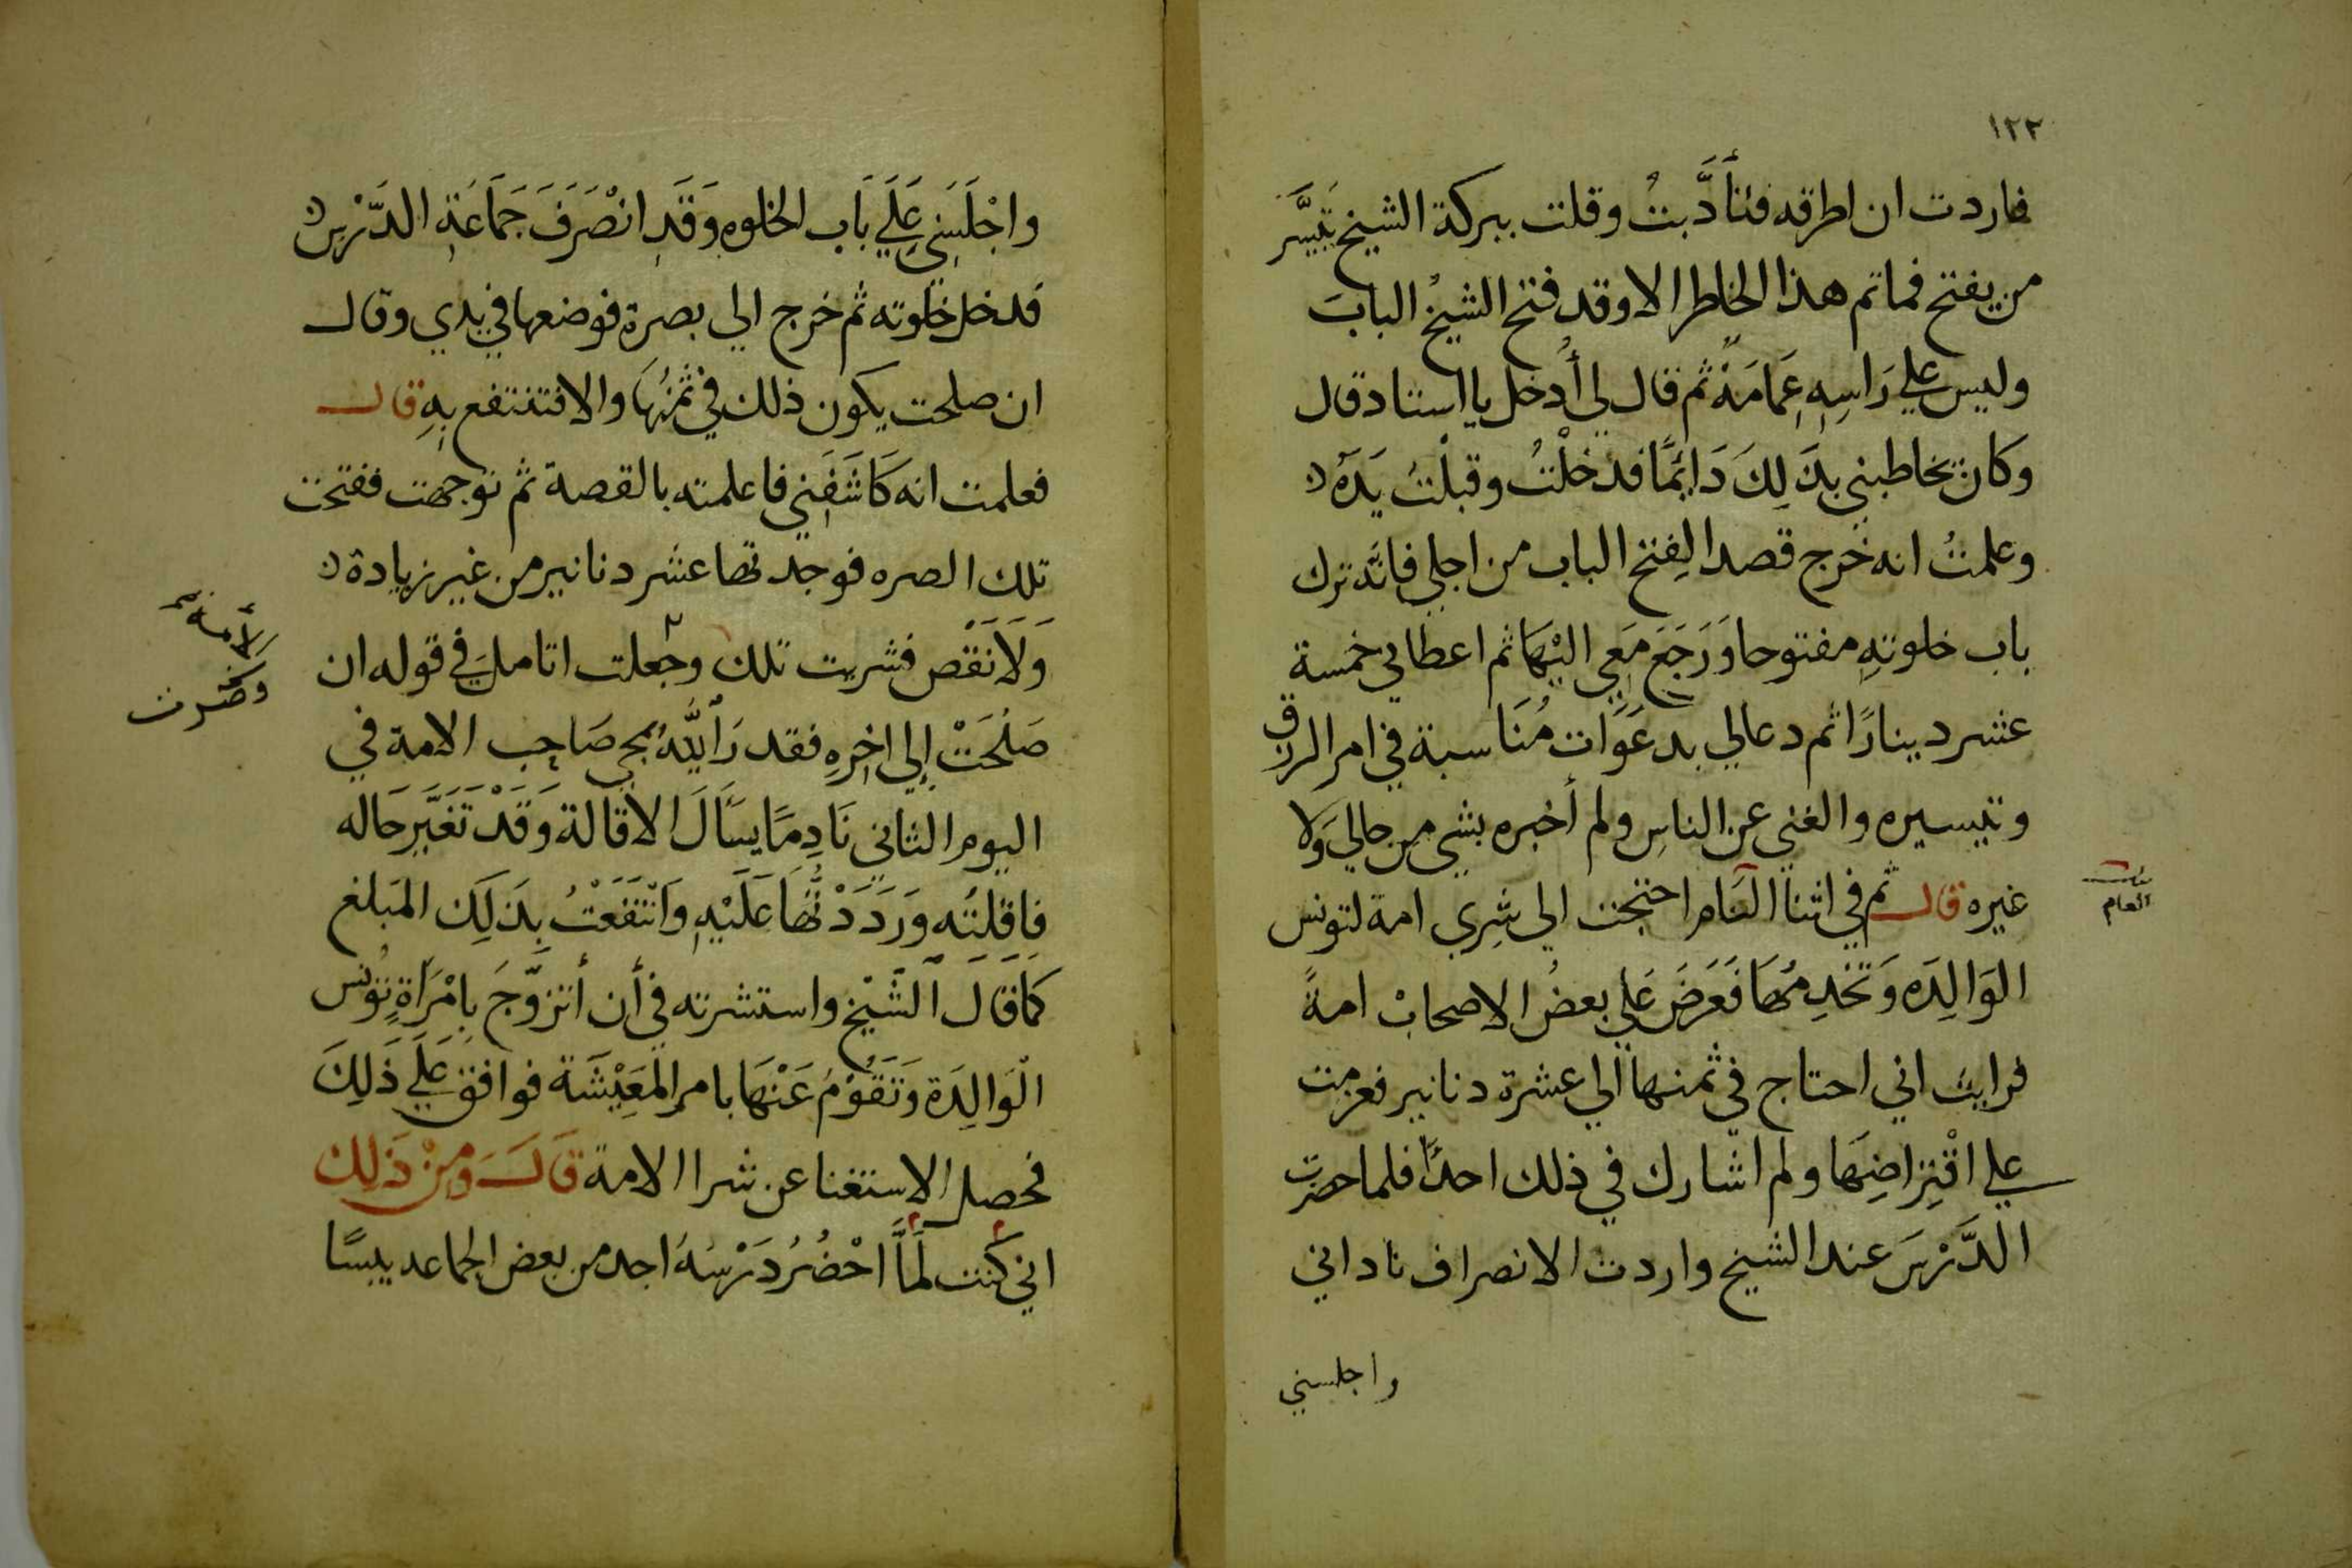 ١٢٢
فاردت ان اطرقه فتأدَّبتُ وقلت ببركة الشيخ يَتيسَّر
من يفتح فماتم هذا الخاطر الا وقد فتح الشيخُ البابَ
وليس علي رَاسِهِ عِمَامَةٌ ثم قال لي أُدخل يا استاد قال
وكان يخاطبني بذَلِكَ دَايمًا فدخلْتُ وقبلْتُ يَدَهُ
وعلمتُ انه خرج قصدا لِفتح الباب من اجلي فانَّه ترك
باب خلوتهِ مفتوحا وَرَجَعَ مَعِي اليْهَا ثم اعطاني خمسة
عشر دينارًا ثم دعالي بدعَوَات مُنَاسبة في امر الرزق
وتيسيره والغني عن الناسِ ولم أخبره بشي مِن حالي وَلا
غيره قال ثم في اثنا العام احتجت الي شِرِي امة لتونس
العام
الوَالِدَه وَتخدِمُهَا فَعَرَضَ عَلي بعضُ الاصحابْ امةً
فرايت اني احتاج في ثمنها الي عشرة دنانير فعزمت
علي اقْتِرَاضِهَا ولم اشارك في ذلك احدًا فلما حضرت
الدَّرْسَ عند الشيخ واردت الانصراف ناداني
واجلسني
واجْلَسَنِي عَلَي بَاب الخلوه وَقَدِ انْصَرَفَ جَمَاعَةِ الدَّرْسِ
فدخل خلوته ثم خرج الي بصرة فوضعها في يدي وقال
ان صلحت يكون ذلك في ثمنُهَا والا فتنتفع بِهِ قال
فعلمت انه كَاشَفَنِي فاعلمته بالقصة ثم توجهت ففتحت
تلك الصره فوجدتها عشر دنانير من غير زيادة
وَلَا نَقْص فشريت تلك وجعلت اتامل في قوله ان
صَلُحَتْ إلي اخِرِهِ فقد رَاللهُ بمجي صَاحِب الامة في
اليوم الثاني نَادِمًا يسَالَ الاقالة وَقَدْ تَغَيَّر حَاله
فاقلتُه وَرَدَدْتُّهَا عَلَيْهِ وَانْتَفَعْتُ بِذَلِكَ المَبلغ
كَمَا قَالَ الشَّيْخ واستشرته في أن أتزوَّجَ بِامْرَاةٍ تونس
الْوَالِدَة وَتَقُوْمُ عَنْهَا بامر المَعِيْشَة فوافق عَلَي ذَلِكَ
فحصل الاستغنا عن شرا الامة قَالَ وَمِنْ ذَلِكَ
اني كنت لَمَّا احْضُرُ دَرْسَهُ اجد من بعض الجماعه يبسًا